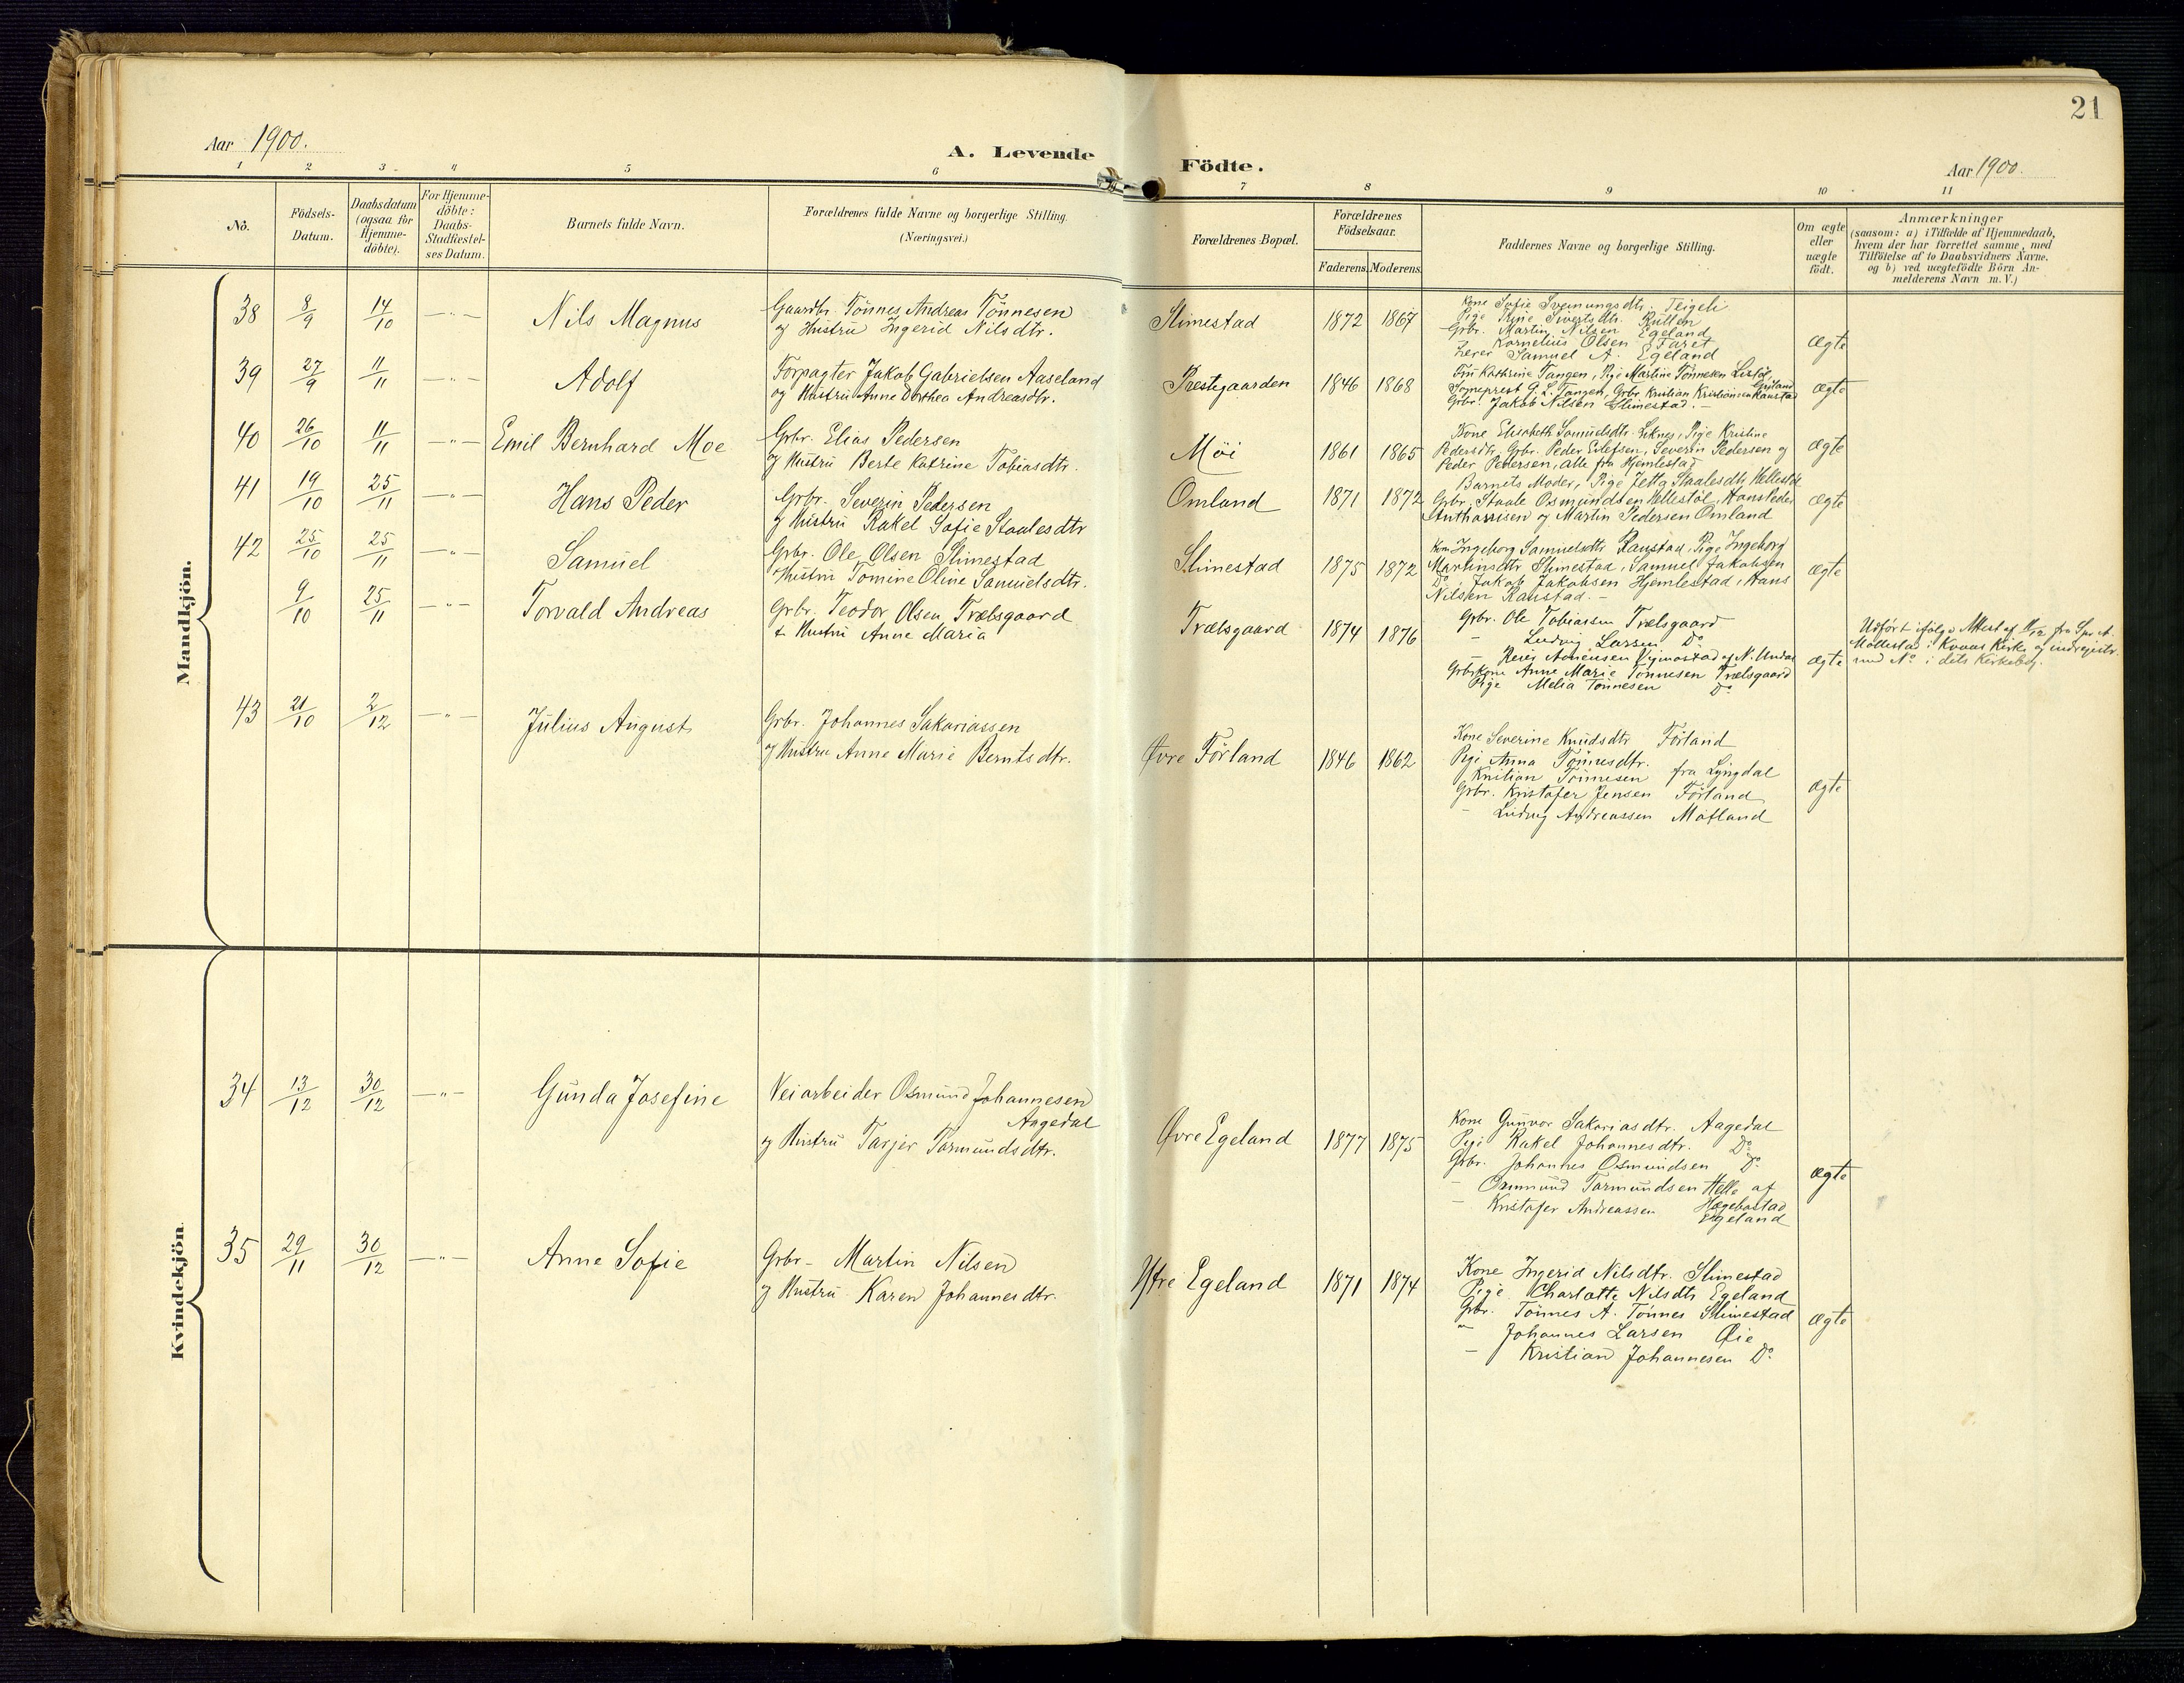 21
Aar 1900.
A. Levende Födte.
Aar 1900.
1 2 3 4 5 6 7 8 9 10 11
No.
Födsels-Datum.
Daabsdatum (ogsaa for Hjemme-döbte).
For Hjemme-döbte: Daabs-Stadfæstel-ses Datum.
Barnets fulde Navn.
Forældrenes fulde Navne og borgerlige Stilling.
(Næringsvei.)
Forældrenes Bopæl.
Forældrenes Födselsaar.
Faderens. Moderens.
Faddernes Navne og borgerlige Stilling.
Om ægte eller uægte födt.
Anmærkninger
(saasom: a) i Tilfælde af Hjemmedaab,
hvem der har forrettet samme, med
Tilföielse af to Daabsvidners Navne.
og b) ved uægtefödte Börn An-
melderens Navn m.V.)
Mandkjön.
38 8/9 14/10 —"— Nils Magnus
Gaardbr. Tönnes Andreas Tönnesen
og Hustru Ingerid Nilsdtr.
Slimestad 1872 1867
Kone Sofie Sveinungsdtr. Teigeli
Pige Trine Sivertsdtr. Kullen
Grbr. Martin Nilsen Egeland
Kornelius Olsen Faret
Lærer Samuel A. Egeland
ægte
39 27/9 11/11 —"— Adolf
Forpagter Jakob Gabrielsen Aaseland
og Hustru Anne Dorthea Andreasdtr.
Prestegaarden 1846 1868
Fru Kathrine Tangen, Pige Martine Tönnesen
Sogneprest G. L. Tangen, Grbr. Kristian Kristiansen Raustad
Grbr. Jakob Nilsen Slimestad.—
ægte
40 26/10 11/11 —"— Emil Bernhard Moe
Grbr. Elias Pedersen
og Hustru Berte Katrine Tobiasdtr.
Möi 1861 1865
Kone Elisabeth Samuelsdtr. Leknes, Pige Kristine
Pedersdtr, Grbr. Peder Eilefsen, Severin Pedersen og
Peder Pedersen, alle fra Hjemlestad
ægte
41 19/10 25/11 —"— Hans Peder
Grbr. Severin Pedersen
og Hustru Rakel Sofie Staalesdtr
Omland 1871 1872
Barnets Moder, Pige Jetta Staalesdtr, Hellestöl
Grbr. Staale Osmundsen Hellestöl, Hans Peder
Anthonisen og Martin Pedersen Omland
ægte
42 25/10 25/11 —"— Samuel
Grbr. Ole Olsen Slimestad
Hustru Tomine Oline Samuelsdtr.
Slimestad 1875 1872
Kone Ingeborg Samuelsdtr Raustad, Pige Ingeborg
Martinsdtr Slimestad, Samuel Jakobsen
Do, Jakob Jakobsen Hjemlestad, Hans
Nilsen Raustad.—
ægte
9/10 25/11 —"— Torvald Andreas
Grbr. Teodor Olsen Trælsgaard
& Hustru Anne Maria
Trælsgaard 1874 1876
Grbr. Ole Tobiassen Trælsgaard
— Ludvig Larsen Do
— Reier Vigmostad af N. Undal
Grbrkone Anne Marie Tönnesen Trælsgaard
Pige Melia Tönnesen Do
ægte
Udfört ifölge Attest af 11/12 fra Spr. A.
Möllestad i Kvaas Kirke og indregistr.
und No i dets Kirkebog.
43 21/10 2/12 —"— Julius August
Grbr. Johannes Sakariassen
og Hustru Anne Marie Berntsdtr.
Övre Förland 1846 1862
Kone Severine Knudsdtr Förland
Pige Anna Tönnesdtr.
Kristian Tönnesen fra Lyngdal
Grbr. Kristofer Jensen Förland
— Ludvig Andreassen Möfland
ægte
Kvindekjön
34 13/12 30/12 —"— Gunda Josefine
Veiarbeider Osmund Johannesen
Aagedal
og Hustru Tarjer Tormundsdtr.
Övre Egeland 1877 1875
Kone Gunvor Sakariasdtr. Aagedal
Pige Rakel Johannesdtr. Do
Grbr. Johannes Osmundsen Do
— Osmund Tarmundsen Helle af
Hægebostad
— Kristofer Andreassen Egeland
ægte
35 29/11 30/12 —"— Anne Sofie
Grbr— Martin Nilsen
og Hustru Karen Johannesdtr.
Ytre Egeland 1871 1874
Kone Ingerid Nilsdtr. Slimestad
Pige Charlotte Nilsdtr Egeland
Grbr. Tönnes A. Tönnes Slimestad
" Johannes Larsen Öie
— Kristian Johannesen Do.
ægte